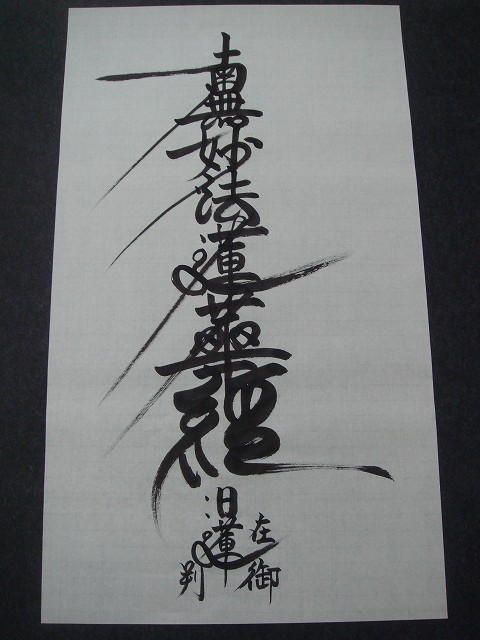 南無妙法蓮華経
日蓮
在御
判